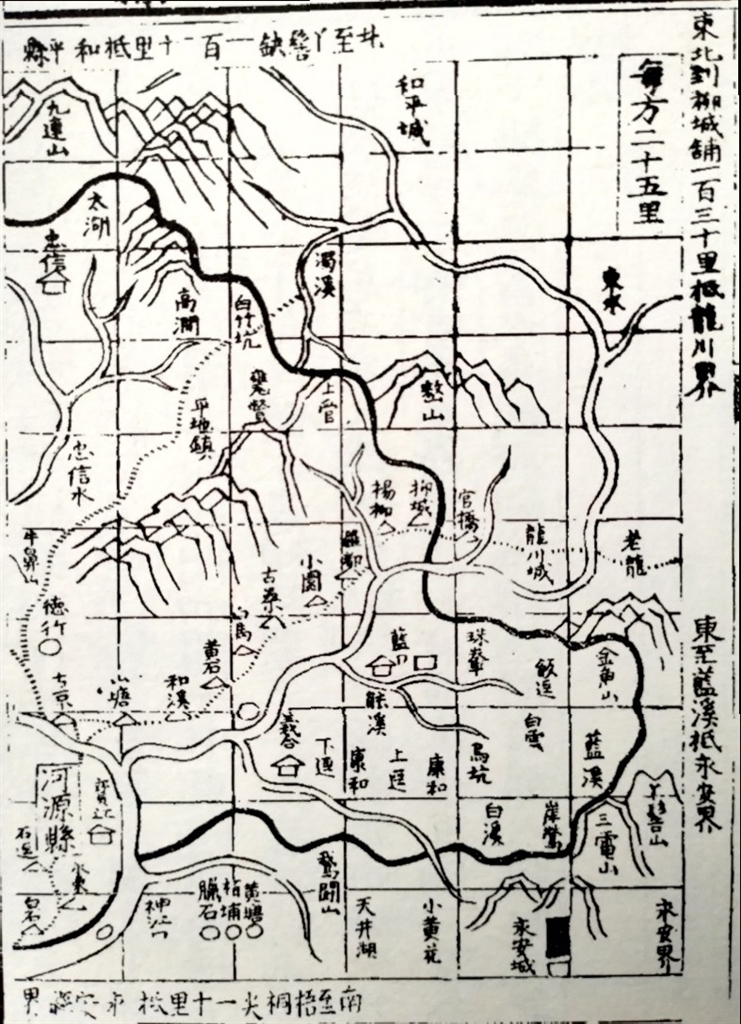 東北到柳城舖一百三十里抵龍川界
東至藍溪抵永安界
每方二十五里
北至丫髻缺一百一十里抵和平縣
和平城
九連山
太湖
忠信
濁溪
東水
高澗
白竹坑
上管
平地鎮
忠信水
楊柳
柳城
官橋
龍川城
老龍
小園
古寨
牛鼻山
德行
黃石
藍口
金魚山
古京
山塘
和溪
義合
下逕
康和
上逕
康和
白雲
馬坑
藍溪
河源縣
白溪
三雷山
丫髻山
石逕
神江
臘石
柏埔
黃塘
鵞鬪山
天井湖
小黃花
永安城
永安界
南至梧桐尖一十里抵永安縣界